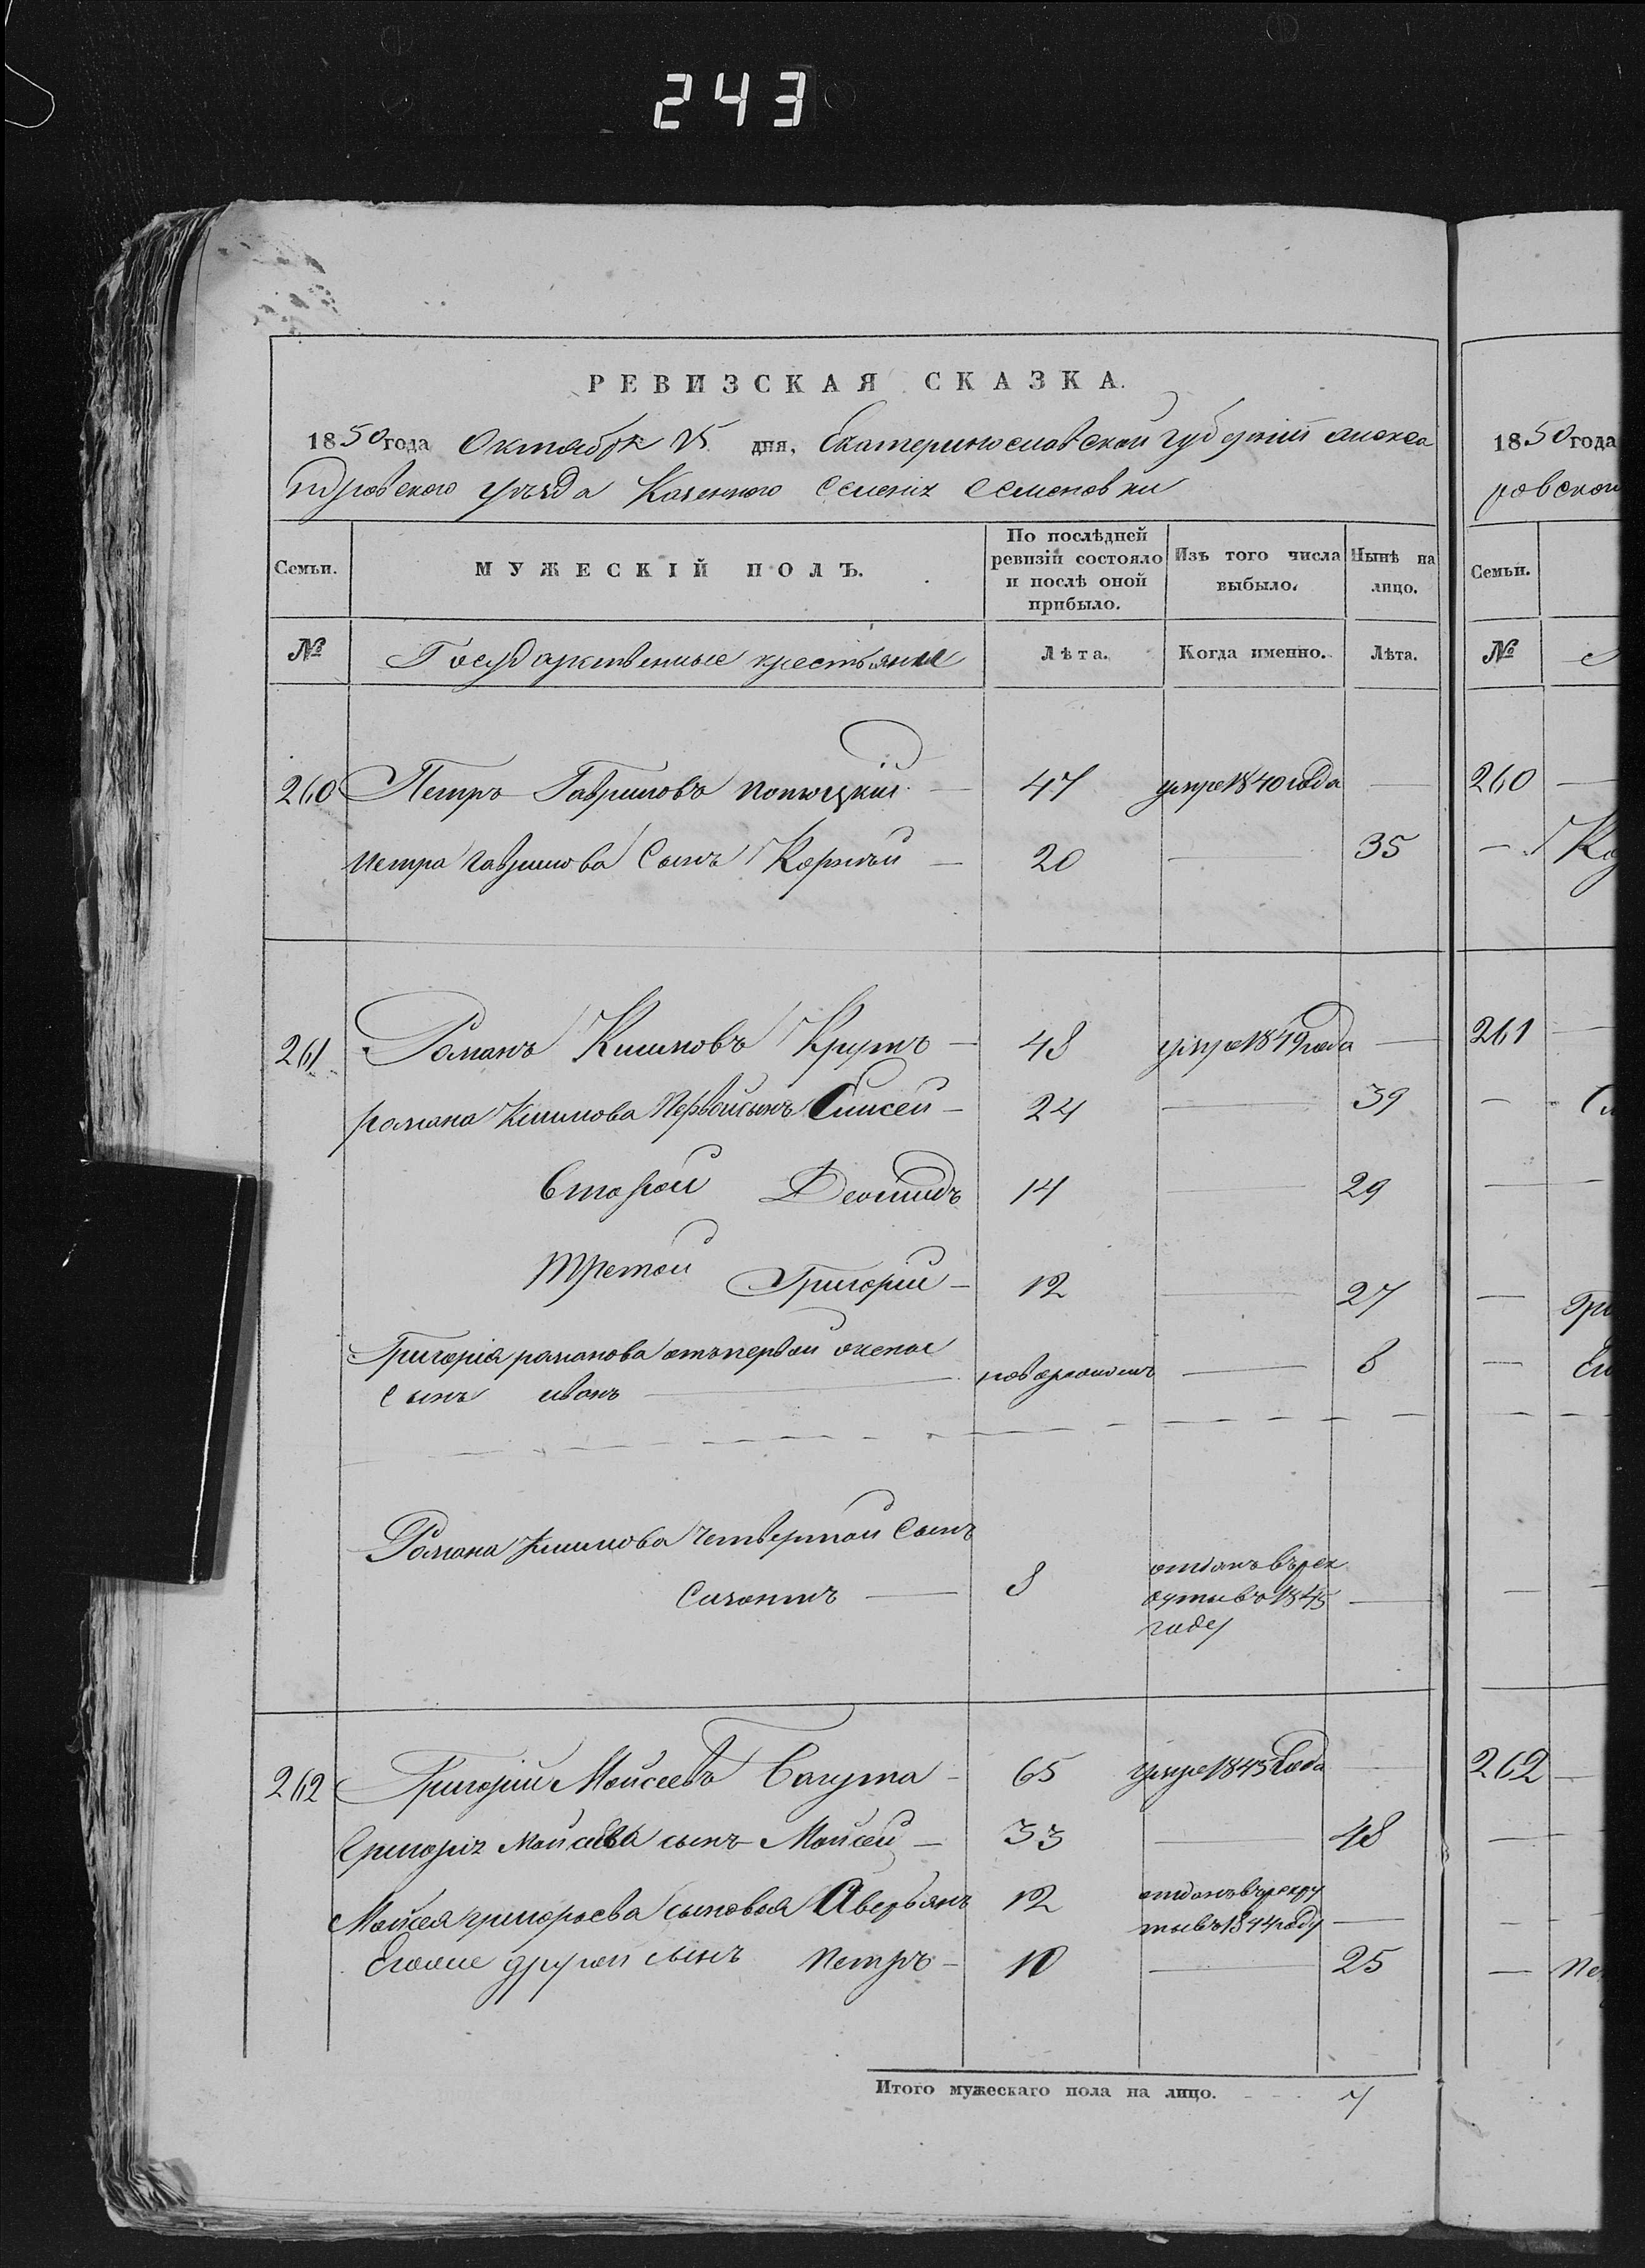 243
РЕВИЗСКАЯ СКАЗКА.
1850 года Октября 25 дня, Екатеринославской губерніи алекса
ндровского уѣзда Казенного Селенія Семеновки
Семьи.
МУЖЕСКІЙ ПОЛЪ.
По послѣдней ревизіи состояло и послѣ оной прибыло.
Изъ того числа выбыло.
Нынѣ на лицо.
№ Государственные крестьяне Лѣта. Когда именно. Лѣта.
260 Петръ Гавриловъ 47 умре 1840 года —
Петра Гаврилова Сынъ Корнѣй — 20 — 35
261 Романъ Климовъ Крутъ — 48 умре 1849 года —
романа Климова Первой сынъ Елисей — 24 — 39
Второй Деомидъ 14 — 29
Третой Григорий — 12 — 27
Григорія романова отъ первой жены
сынъ иванъ — новорожденъ — 8
Романа Климова четвертой Сынъ
8
отданъ въ рек
руты въ 1845
году
262 Григорій Моисеевъ Багута — 65 умре 1845 Года —
Григорія Моисеева сынъ Моисей — 33 — 48
Моисея григорьева сыновья Аверьянъ 12 отданъ въ рекру
ты въ 1844 году —
Егоже другой сынъ Петръ — 10 — 25
Итого мужескаго пола на лицо. 7
1850 года
ровской
Семьи.
№
260 —
261 —
262 —